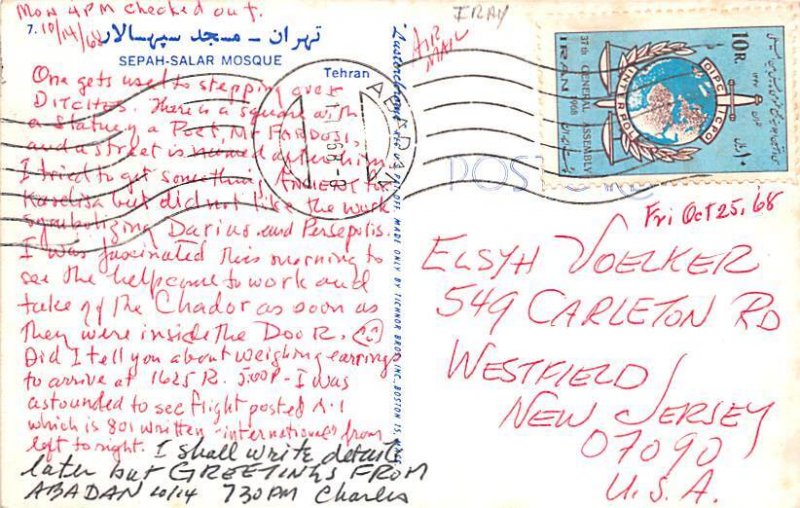 Mon 4PM checked out.
7. 10/14/68
تهران - مسجد سپهسالار
SEPAH-SALAR MOSQUE
Tehran
One gets used to stepping over
Ditches. There is a square with
a statue of a Poet, Mr FARDOSI,
and a street is named after him.
I tried to get something Ancient for
but did not like the work
symbolizing Darius and Persepolis.
I was fascinated this morning to
see the help come to work and
take off the Chador as soon as
they were inside the Door.
Did I tell you about weighing earrings
to arrive at 1625 R. 5:00P - I was
astounded to see flight posted
which is 801 written "international" from
left to right.
I shall write details
later but GREETINGS FROM
ABADAN 10/14 730PM Charles
"Lusterchrome" REG. U.S. PAT. OFF. MADE ONLY BY TICHNOR BROS. INC., BOSTON 15, MASS.
IRAN
AIR
MAIL
POST
10R
37th GENERAL ASSEMBLY
1968
IRAN
OIPC
ICPO
INTERPOL
Fri Oct 25, '68
ELSYH VOELKER
549 CARLETON RD
WESTFIELD
NEW JERSEY
07090
U.S.A.